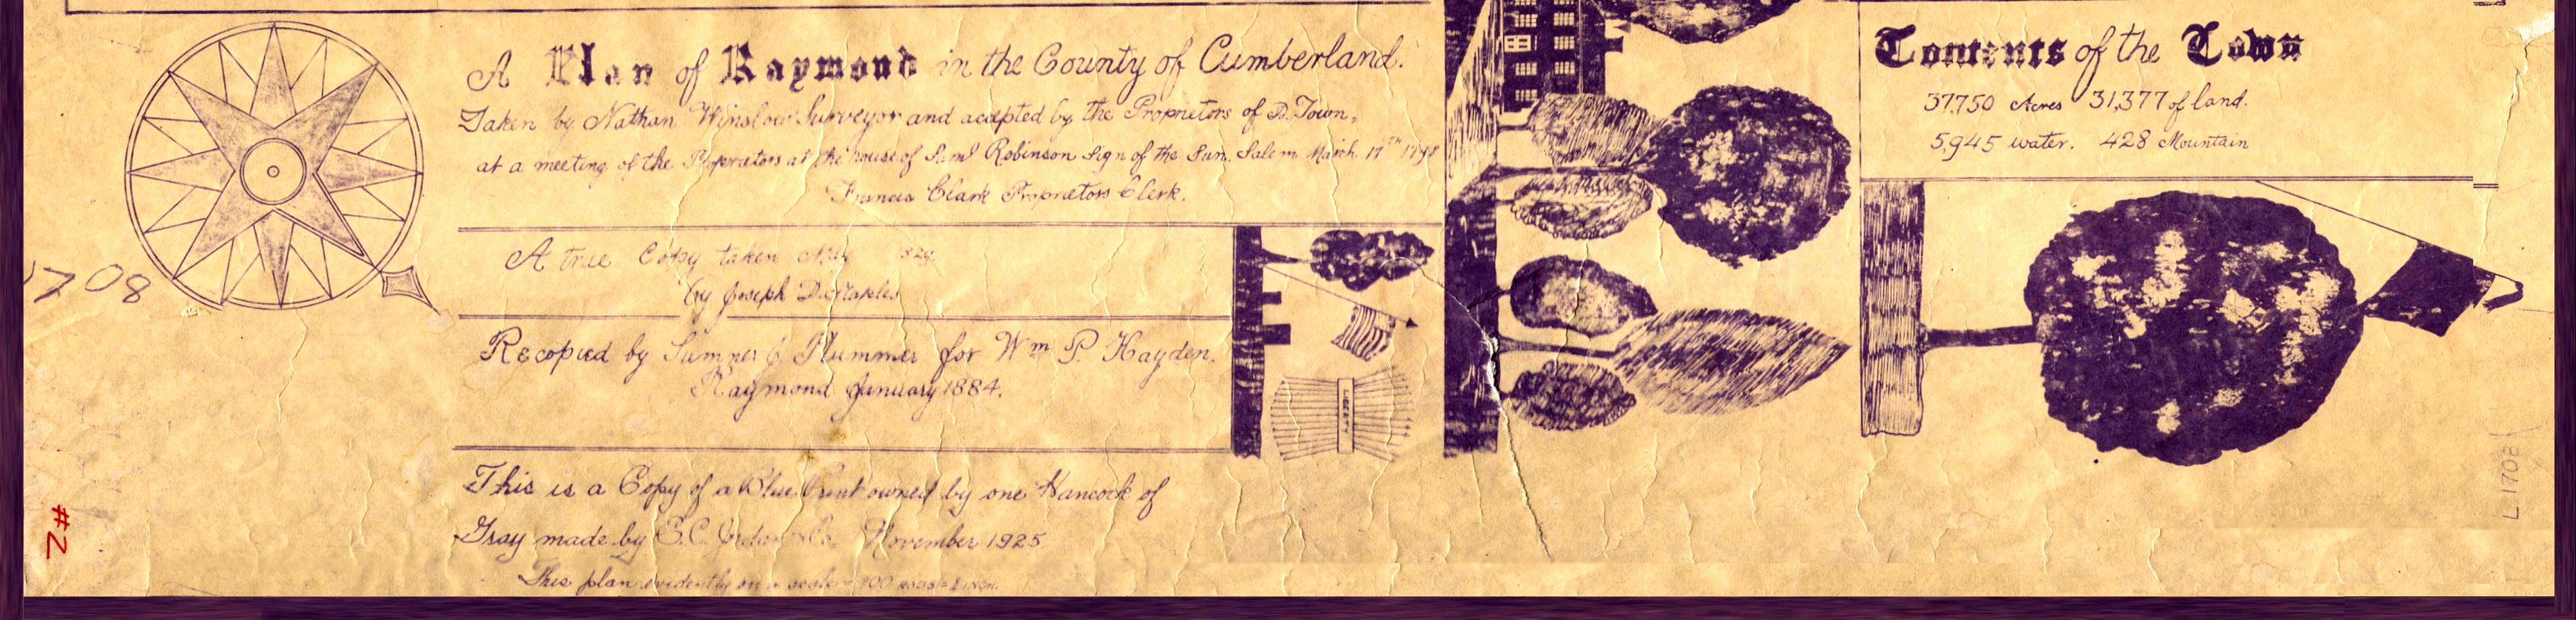 A Plan of Raymond in the County of Cumberland.
Taken by Nathan Winslow Surveyor and accepted by the Proprietors of sd. Town,
at a meeting of the Proprietors at the house of Saml Robinson Sign of the Sun, Salem March 17th
Francis Clark Proprietors Clerk.
A true Copy taken
by Joseph D. Staples
Recopied by Sumner Plummer for Wm P. Hayden.
Raymond January 1884.
This is a Copy of a Blue Print owned by one Hancock of
Gray made by E.C. Jordan & Co. November 1925.
This plan evidently on a scale 100 rods = 1 inch.
LIBERTY
Contents of the Town
37750 Acres 31,377 of land.
5,945 water. 428 Mountain
1708
#2
L1708